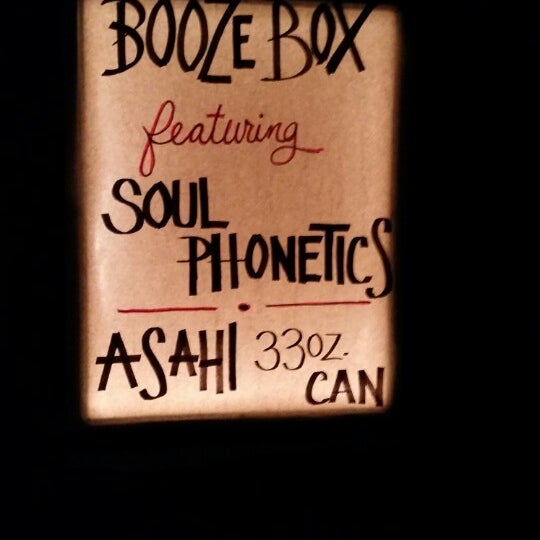 BOOZE BOX
featuring
SOUL
PHONETICS
ASAHI 33OZ.
CAN